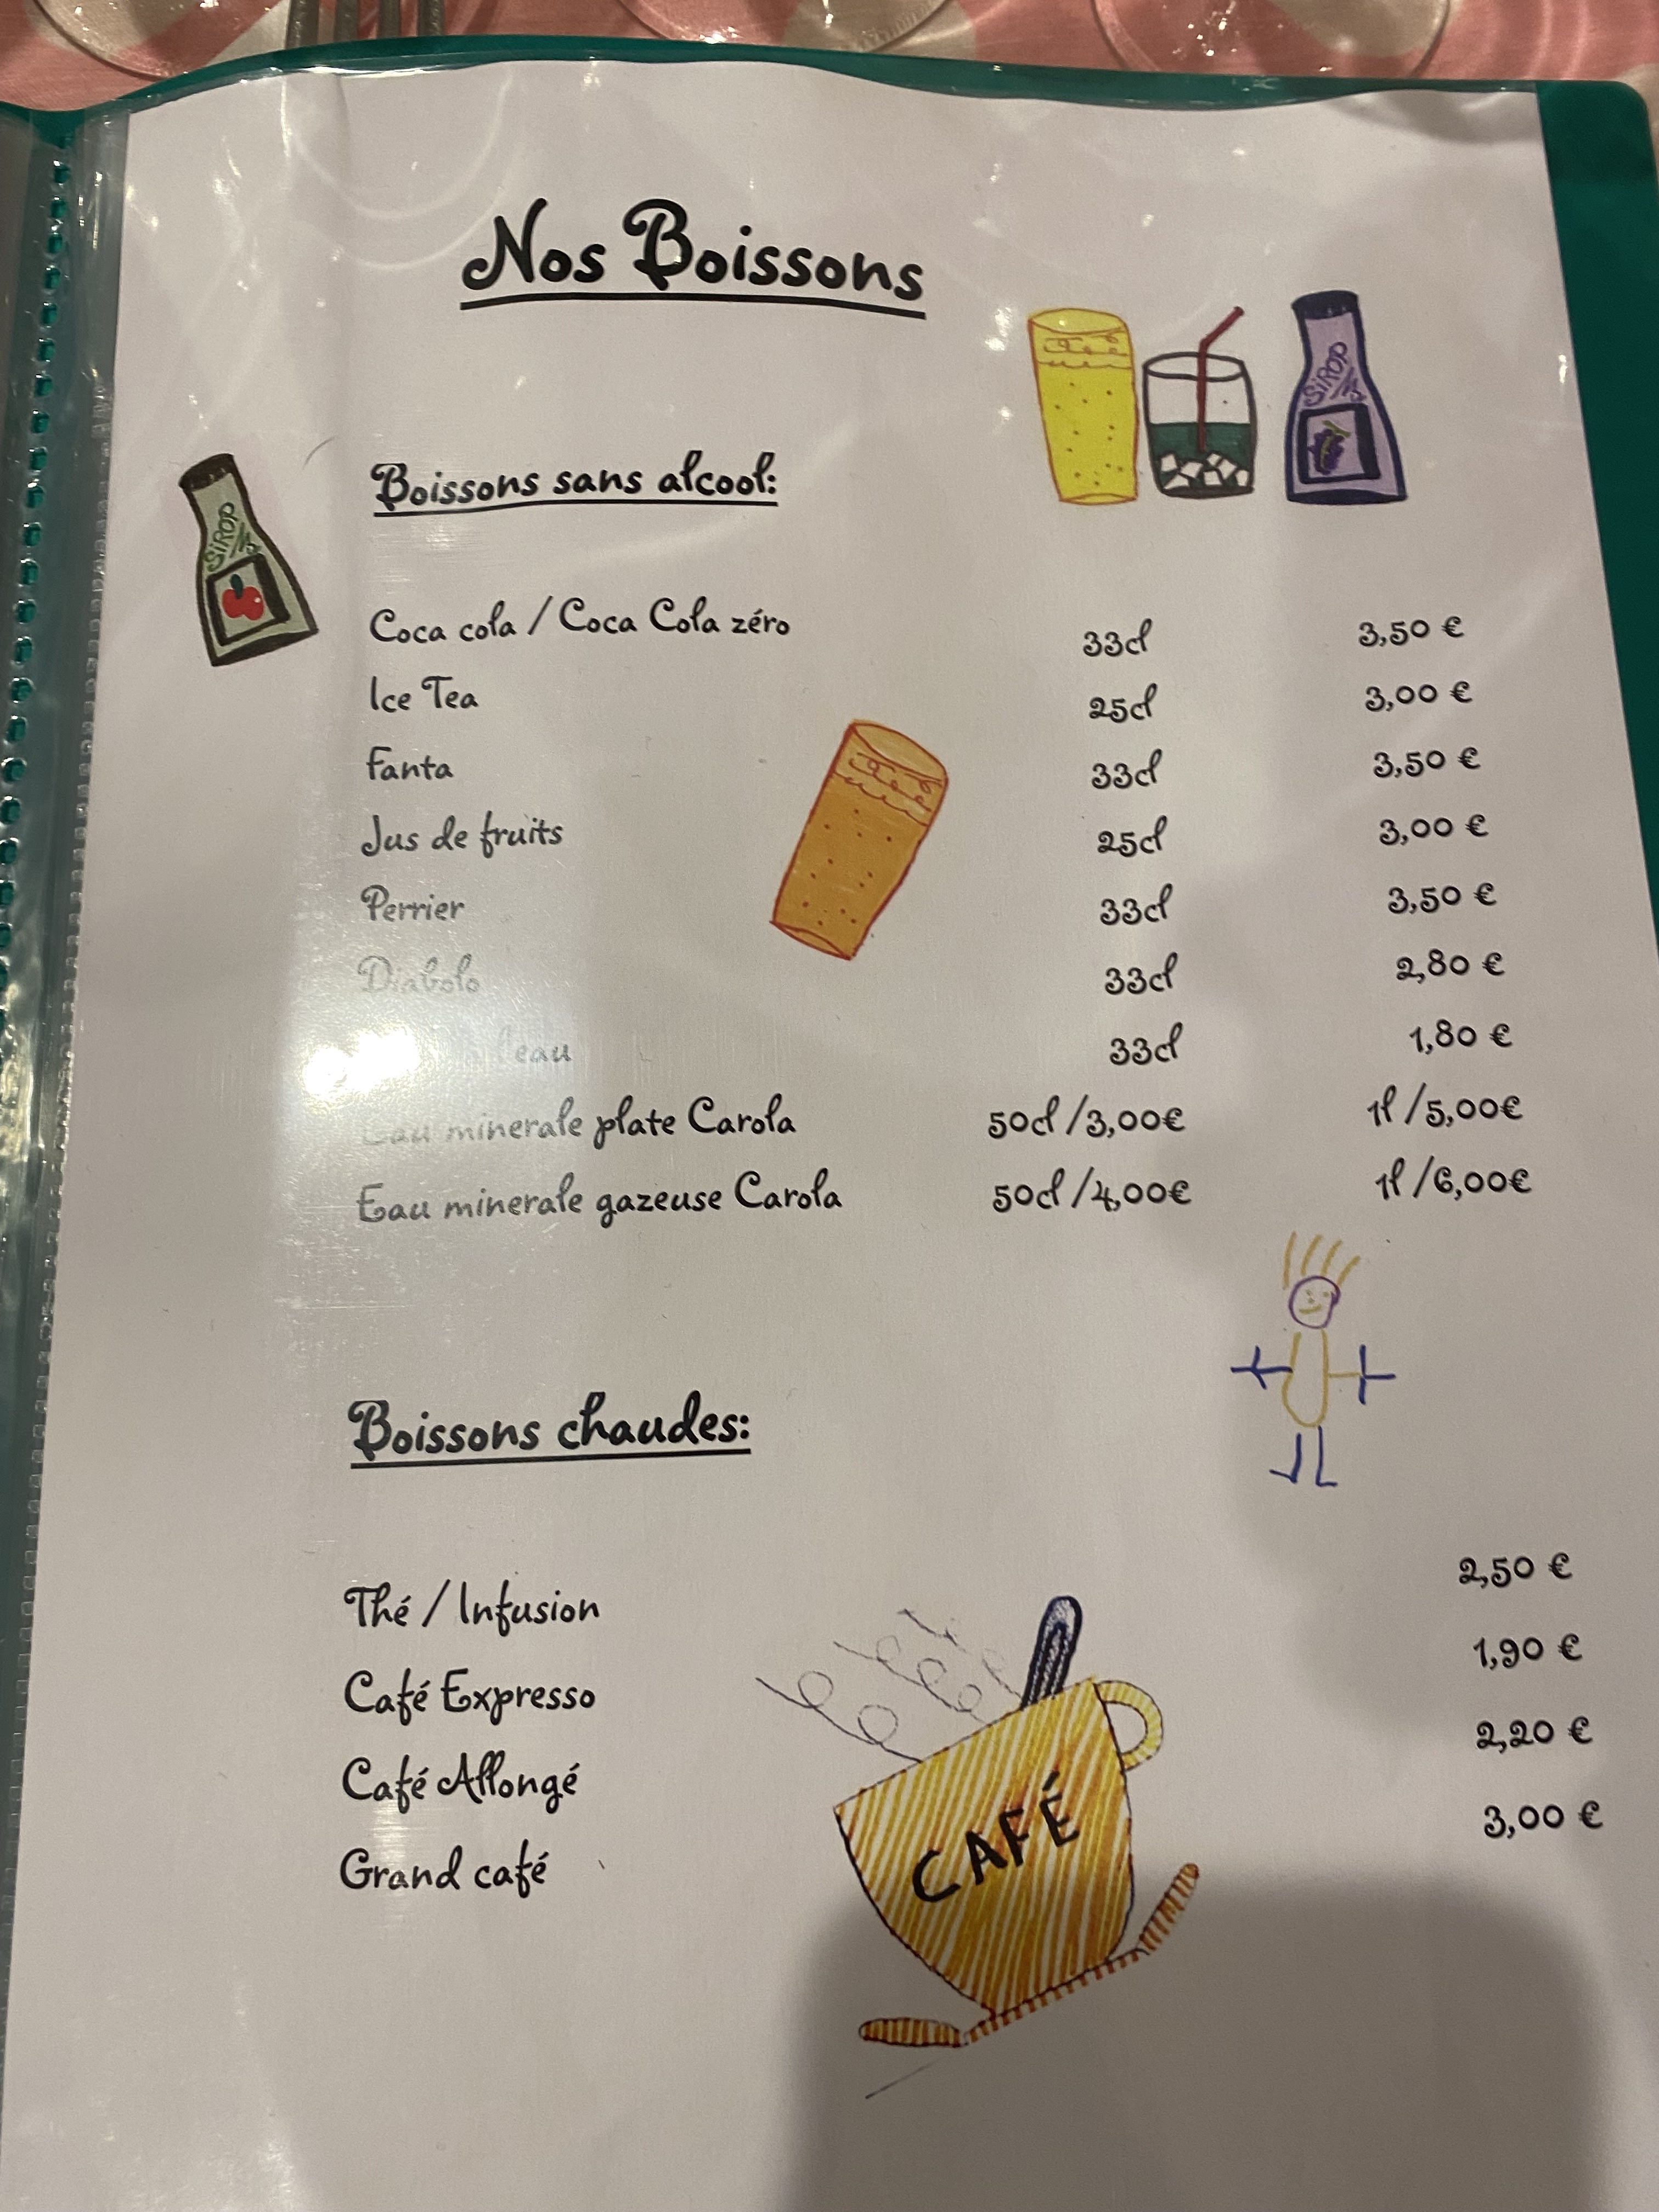 Nos Boissons
SiROP
SiROP
Boissons sans alcool:
Coca cola / Coca Cola zéro 33cl 3,50 €
Ice Tea 25cl 3,00 €
Fanta 33cl 3,50 €
Jus de fruits 25cl 3,00 €
Perrier 33cl 3,50 €
Diabolo 33cl 2,80 €
l'eau 33cl 1,80 €
Eau minerale plate Carola 50cl /3,00€ 1l /5,00€
Eau minerale gazeuse Carola 50cl /4,00€ 1l /6,00€
Boissons chaudes:
Thé / Infusion 2,50 €
Café Expresso 1,90 €
Café Allongé 2,20 €
Grand café 3,00 €
CAFÉ